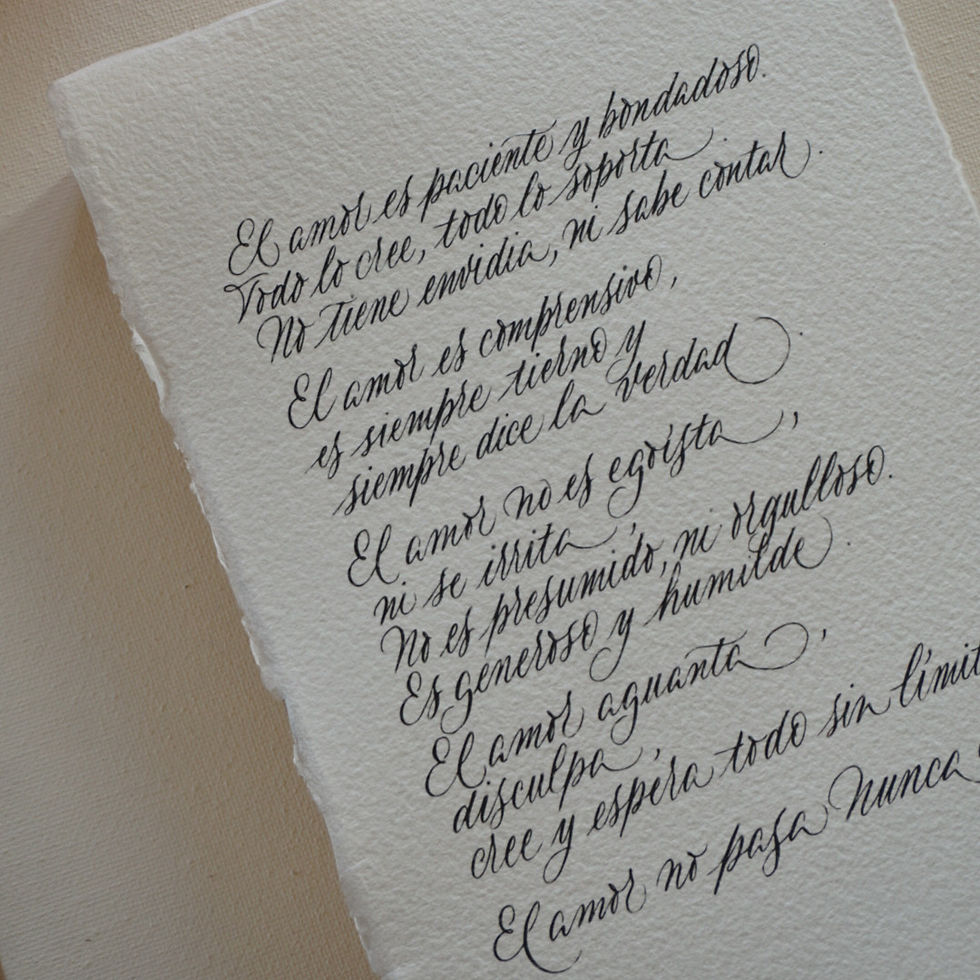 El amor es paciente y bondadoso.
Todo lo cree, todo lo soporta.
No tiene envidia, ni sabe contar.
El amor es comprensivo,
es siempre tierno y
siempre dice la verdad.
El amor no es egoísta,
ni se irrita,
No es presumido, ni orgulloso.
Es generoso y humilde.
El amor aguanta,
disculpa,
cree y espera todo sin límit
El amor no pasa nunca